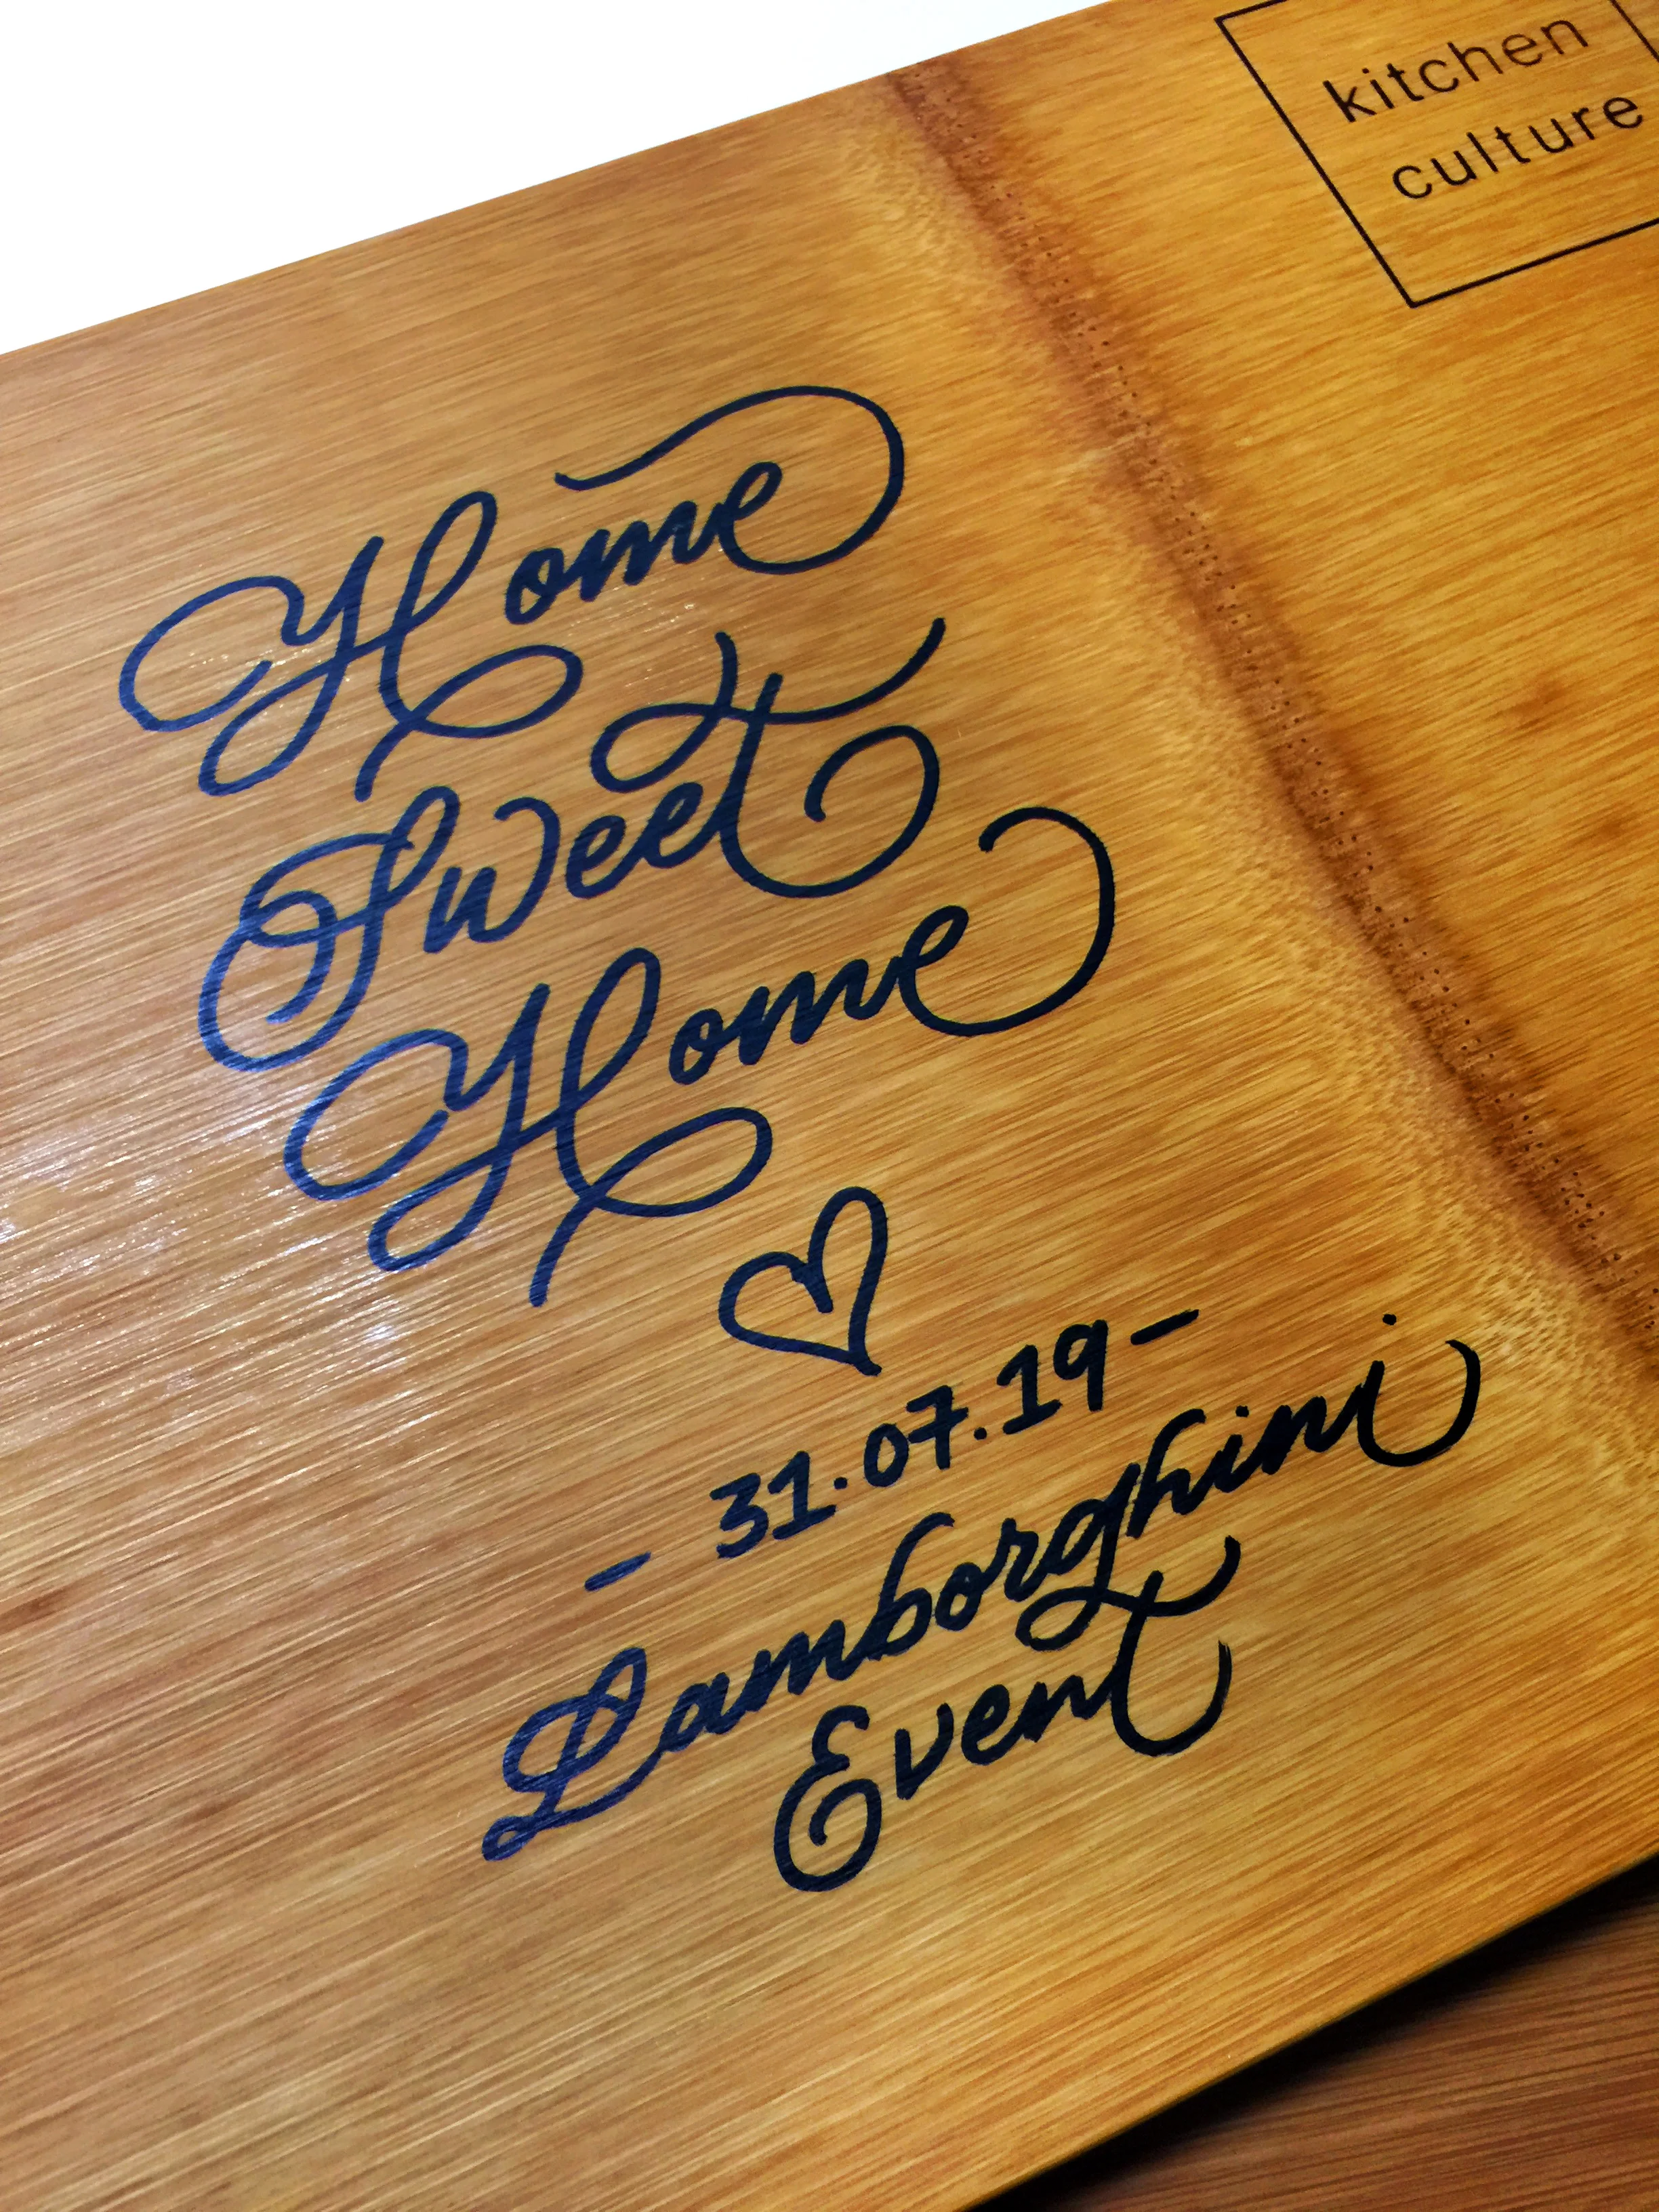 kitchen
culture
Home
Sweet
Home
- 31.07.19 -
Lamborghini
Event